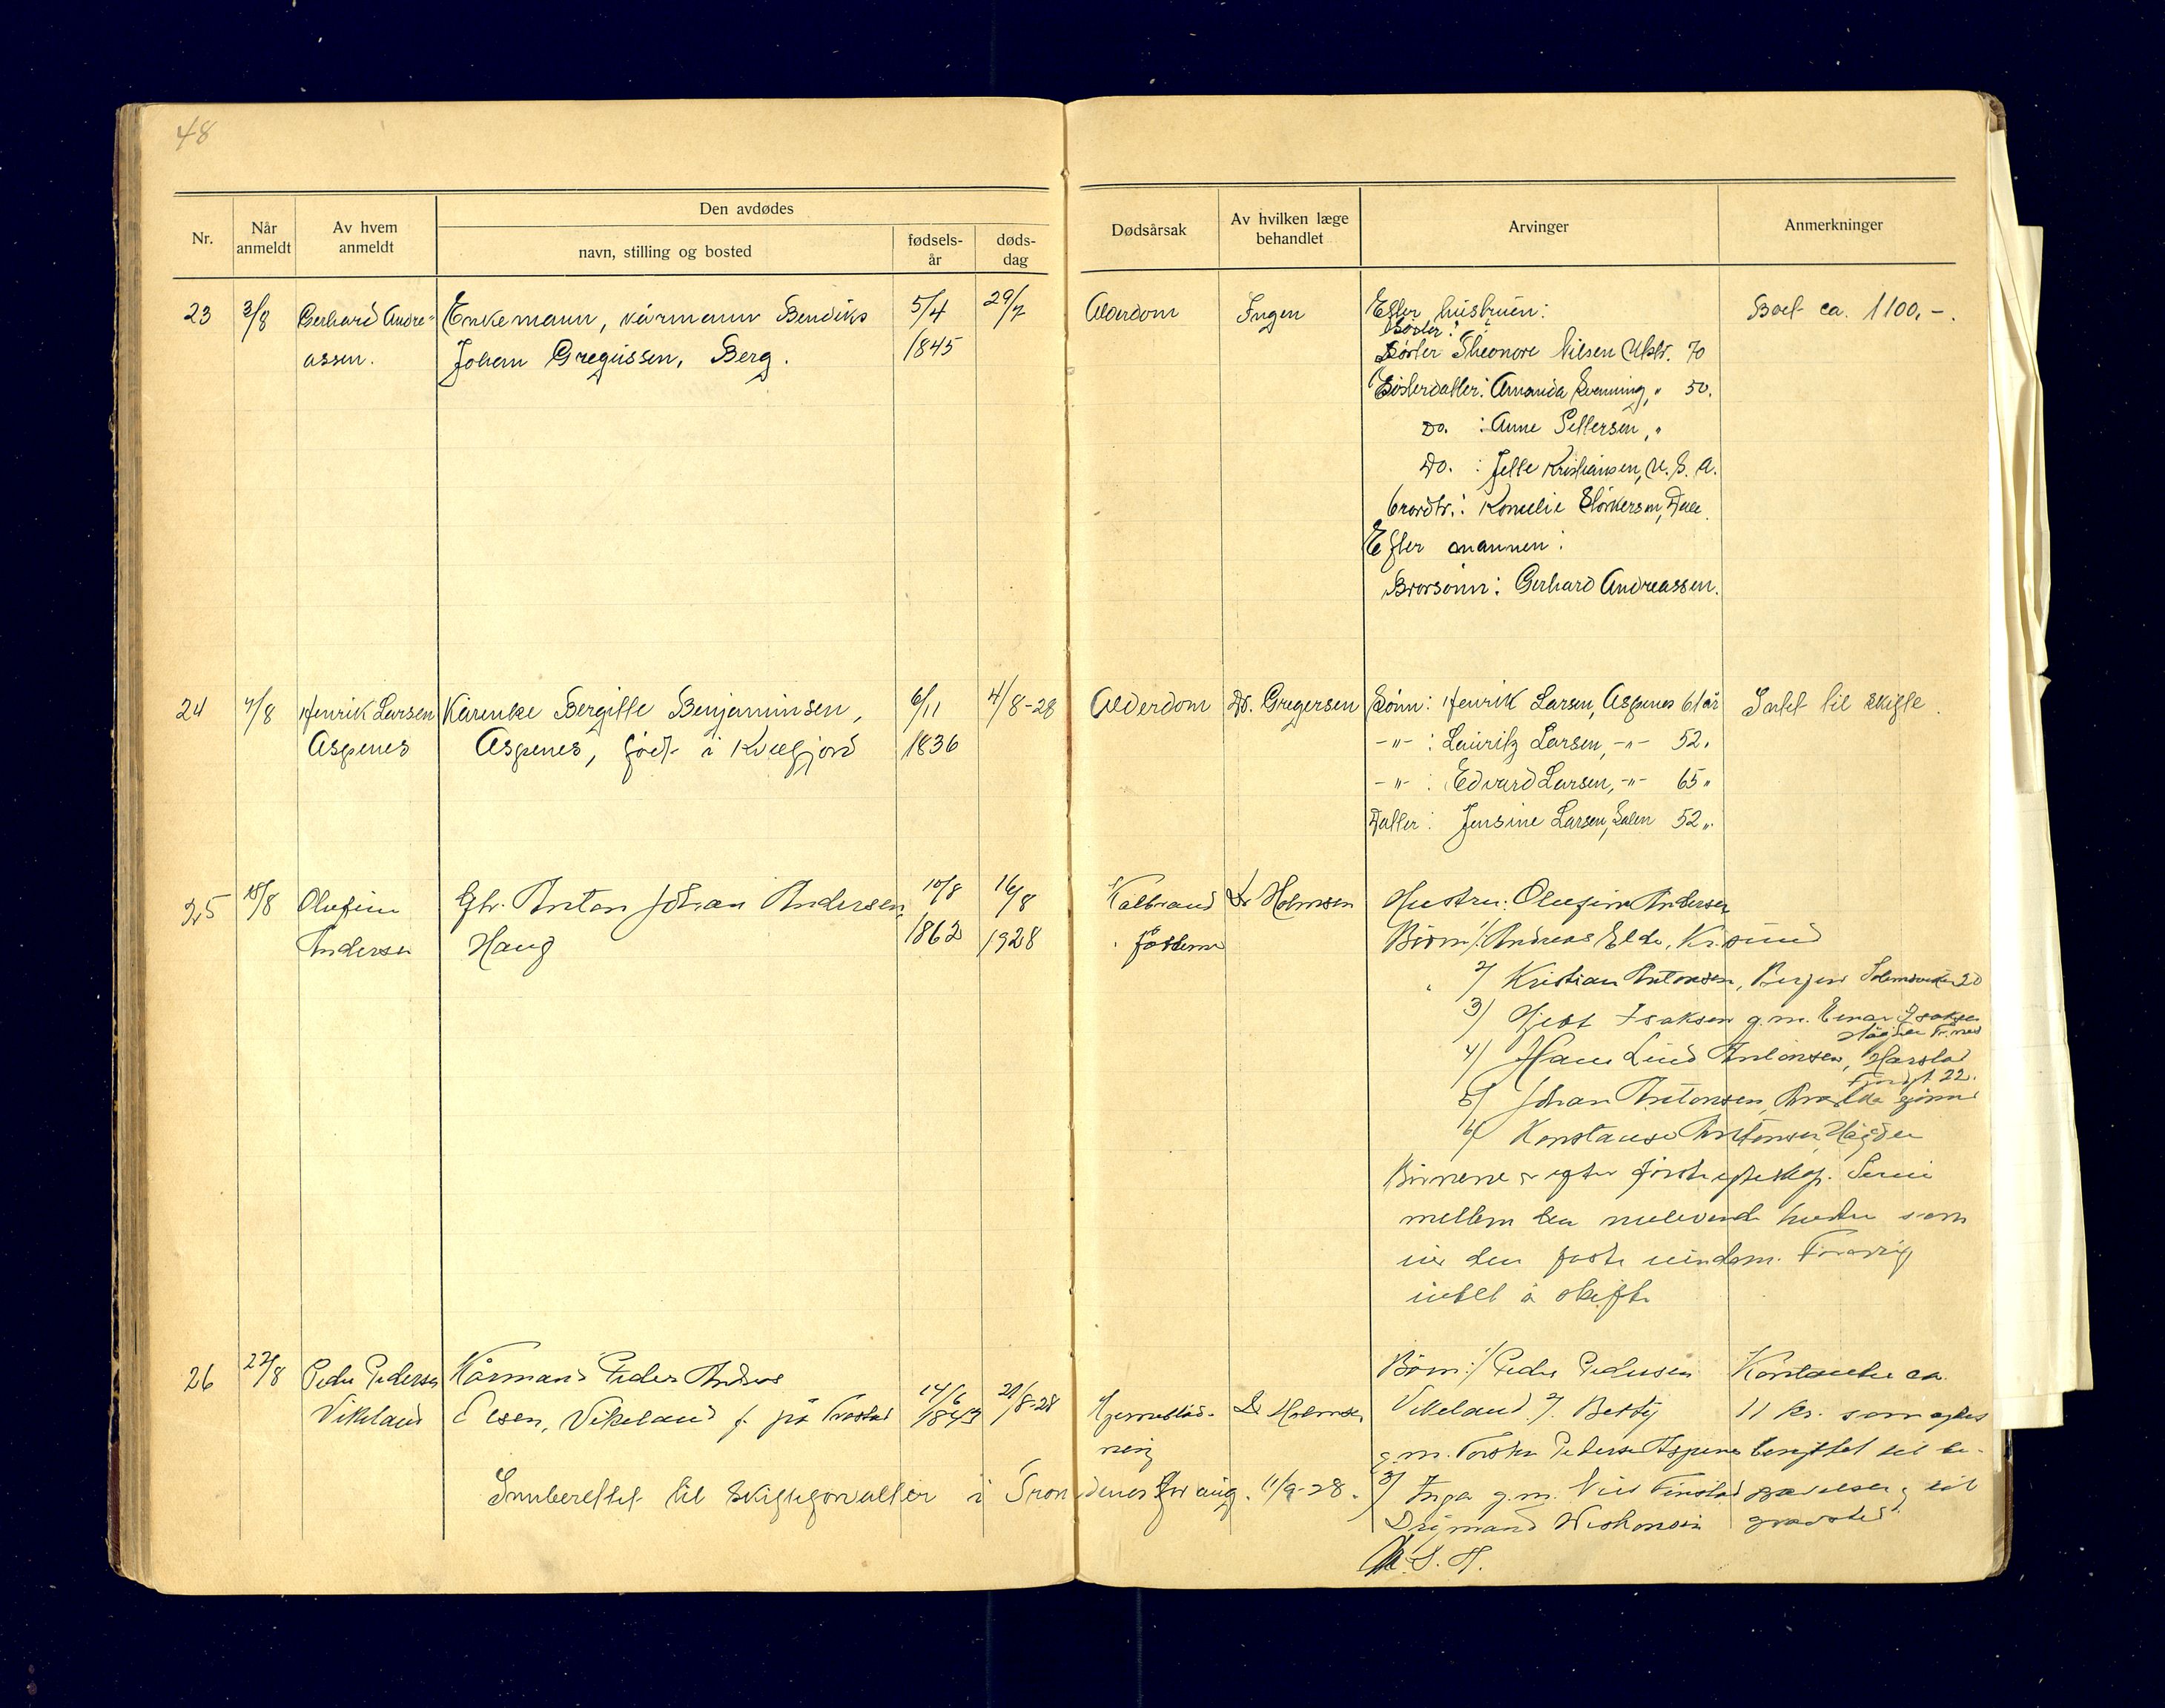 48
Nr.
Når anmeldt
Av hvem anmeldt
Den avdødes
navn, stilling og bosted
fødsels-
år
døds-
dag
Dødsårsak
Av hvilken læge
behandlet
Arvinger
Anmerkninger
23 3/8 Gerhard Andre= Enkemann, kårmann Bendiks 5/4 29/7 Alderdom Ingen Efter hustruen: Boet ca. 1100,-.
Søster:
assen. Johan Gregussen, Berg. 1845 Søster Theonore Nilsen 70
Søsterdatter: Amanda Evenning, " 50.
Do. : Anne Pettersen, "
Do. : Jelle Kristiansen, U.S.A.
brordtr.: Kornelie Størkersen,
Efter mannen:
Brorsønn: Gerhard Andreassen.
24 7/8 Henrik Larsen Kårenke Bergitte Benjaminsen, 6/11 4/8-28 Alderdom Dr. Gregersen Sønn: Henrik Larsen, Aspenes 61 år Intet til skifte.
Aspenes Aspenes, født i Kvæfjord 1836 -"- : Lauritz Larsen, -"- 52.
-"- : Edvard Larsen, -"- 65 "
Datter: Jensine Larsen, Salen 52 ".
25 18/8 Olufine Gbr. Anton Johan Andersen, 10/8 16/8 Kalbrand Dr Holmsen Hustru: Olufine Andersen
Andersen Haug 1862 1928 i føttene Børn 1/ Andreas Elde, Kr.sund
2/ Kristian Antonsen, Bergen 20
3/ Isaksen g.m. Einar Isaksen
4/ Hans Lind Antonsen, Harstad
22.
5/ Johan Antonsen,
6/ Konstanse Antonsen,
Børnene er efter første egteskap. Særeie
mellem den nulevende hustru som
eier den faste eiendom. Forøvrig
intet å skifte
26 22/8 Peder Pedersen Kårmann Peder Andreas Børn: 1/ Peder Pedersen Kontanter ca.
Vikeland Olsen, Vikeland f. på Trastad 14/6 1843 21/8-28 Hjerneblød- Dr Holmsen Vikeland 2/ Betty 11 kr. som agtes
ning g.m. Torsten Pedersen Aspenes benyttet til be-
Innberettet til skifteforvalter i Trondenes for aug. 11/9-28. 3/ Inga g.m. Nils Finstad gravelsen og til
Wiskonsin gravsted
U.S.A.